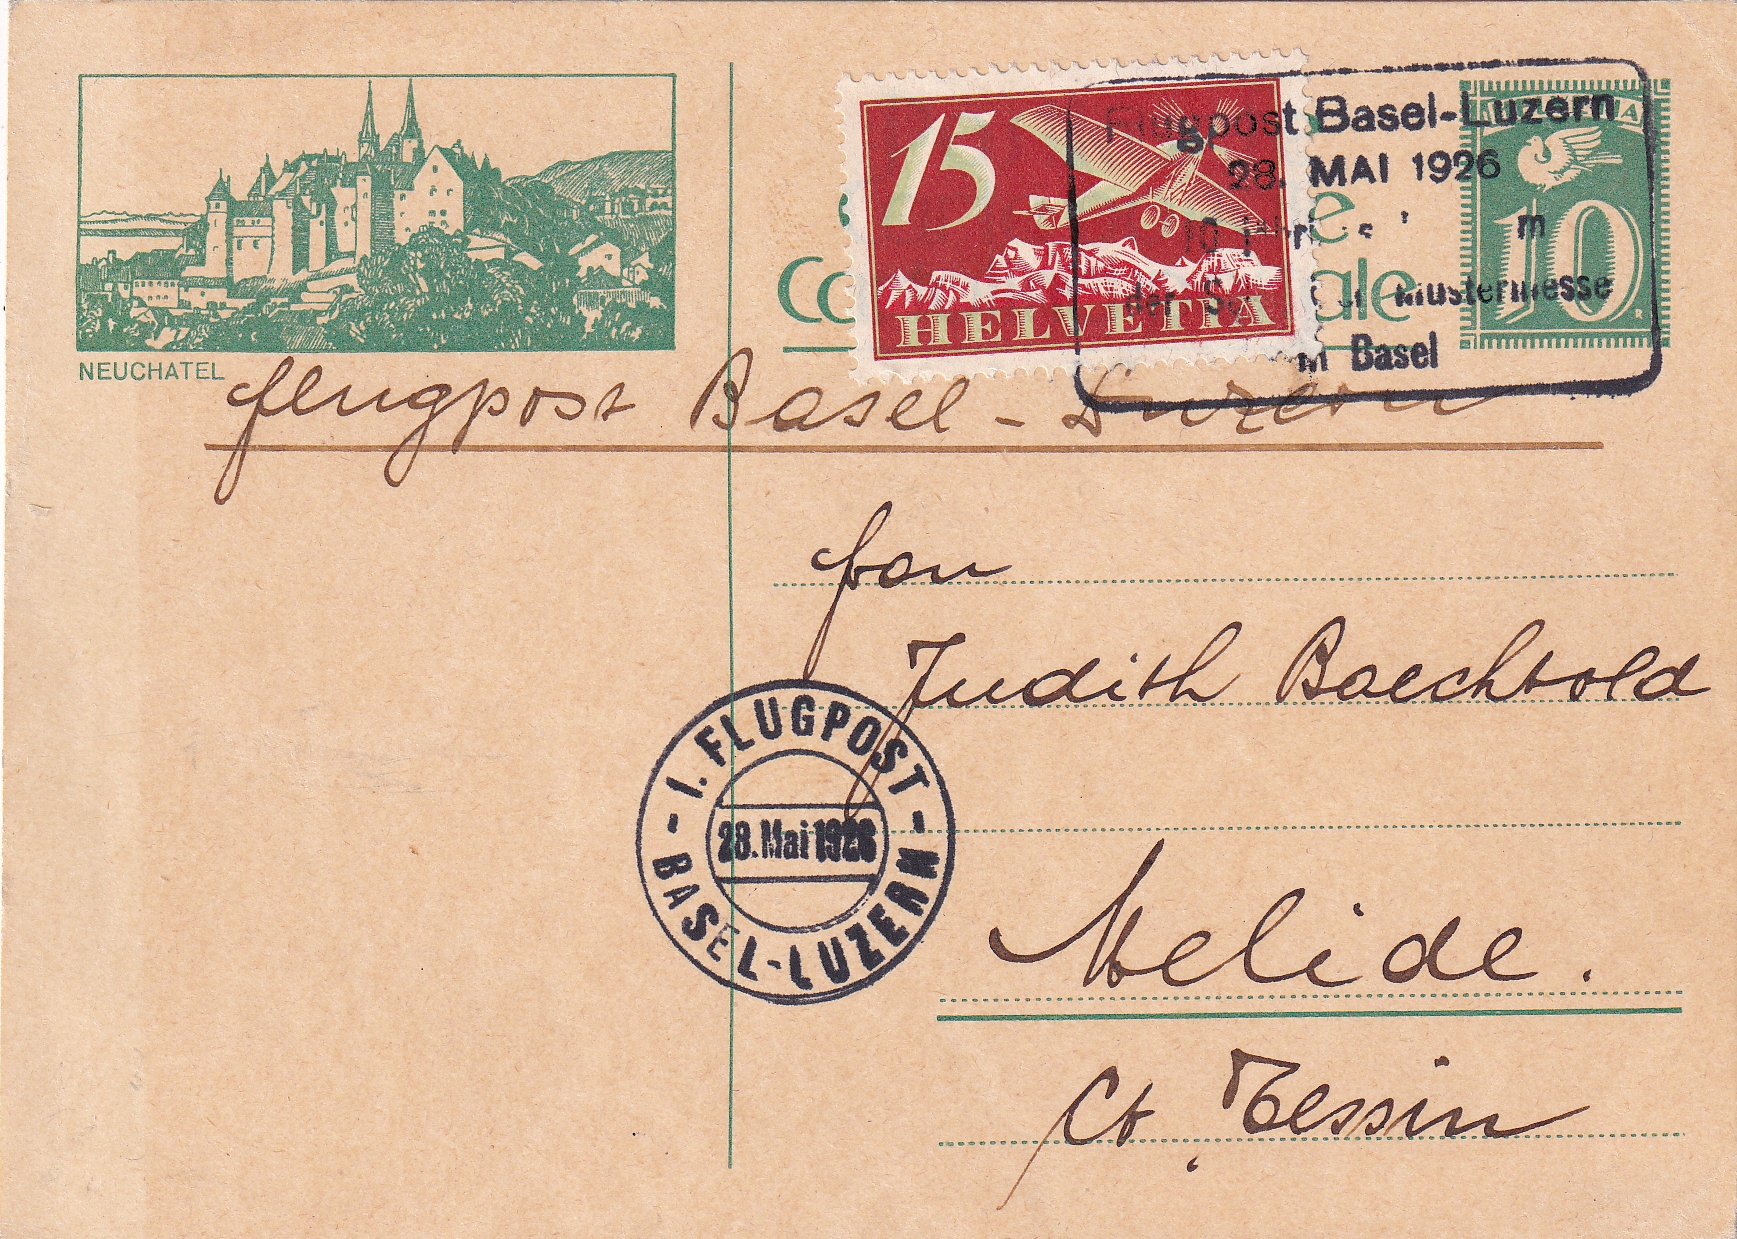 NEUCHATEL
15
HELVETIA
10
Flugpost Basel-Luzern
28. MAI 1926
der Mustermesse
Basel
Flugpost Basel - Luzern
Judith Baechtold
1. FLUGPOST
28. Mai 1926
BASEL-LUZERN
Melide.
Ct. Tessin